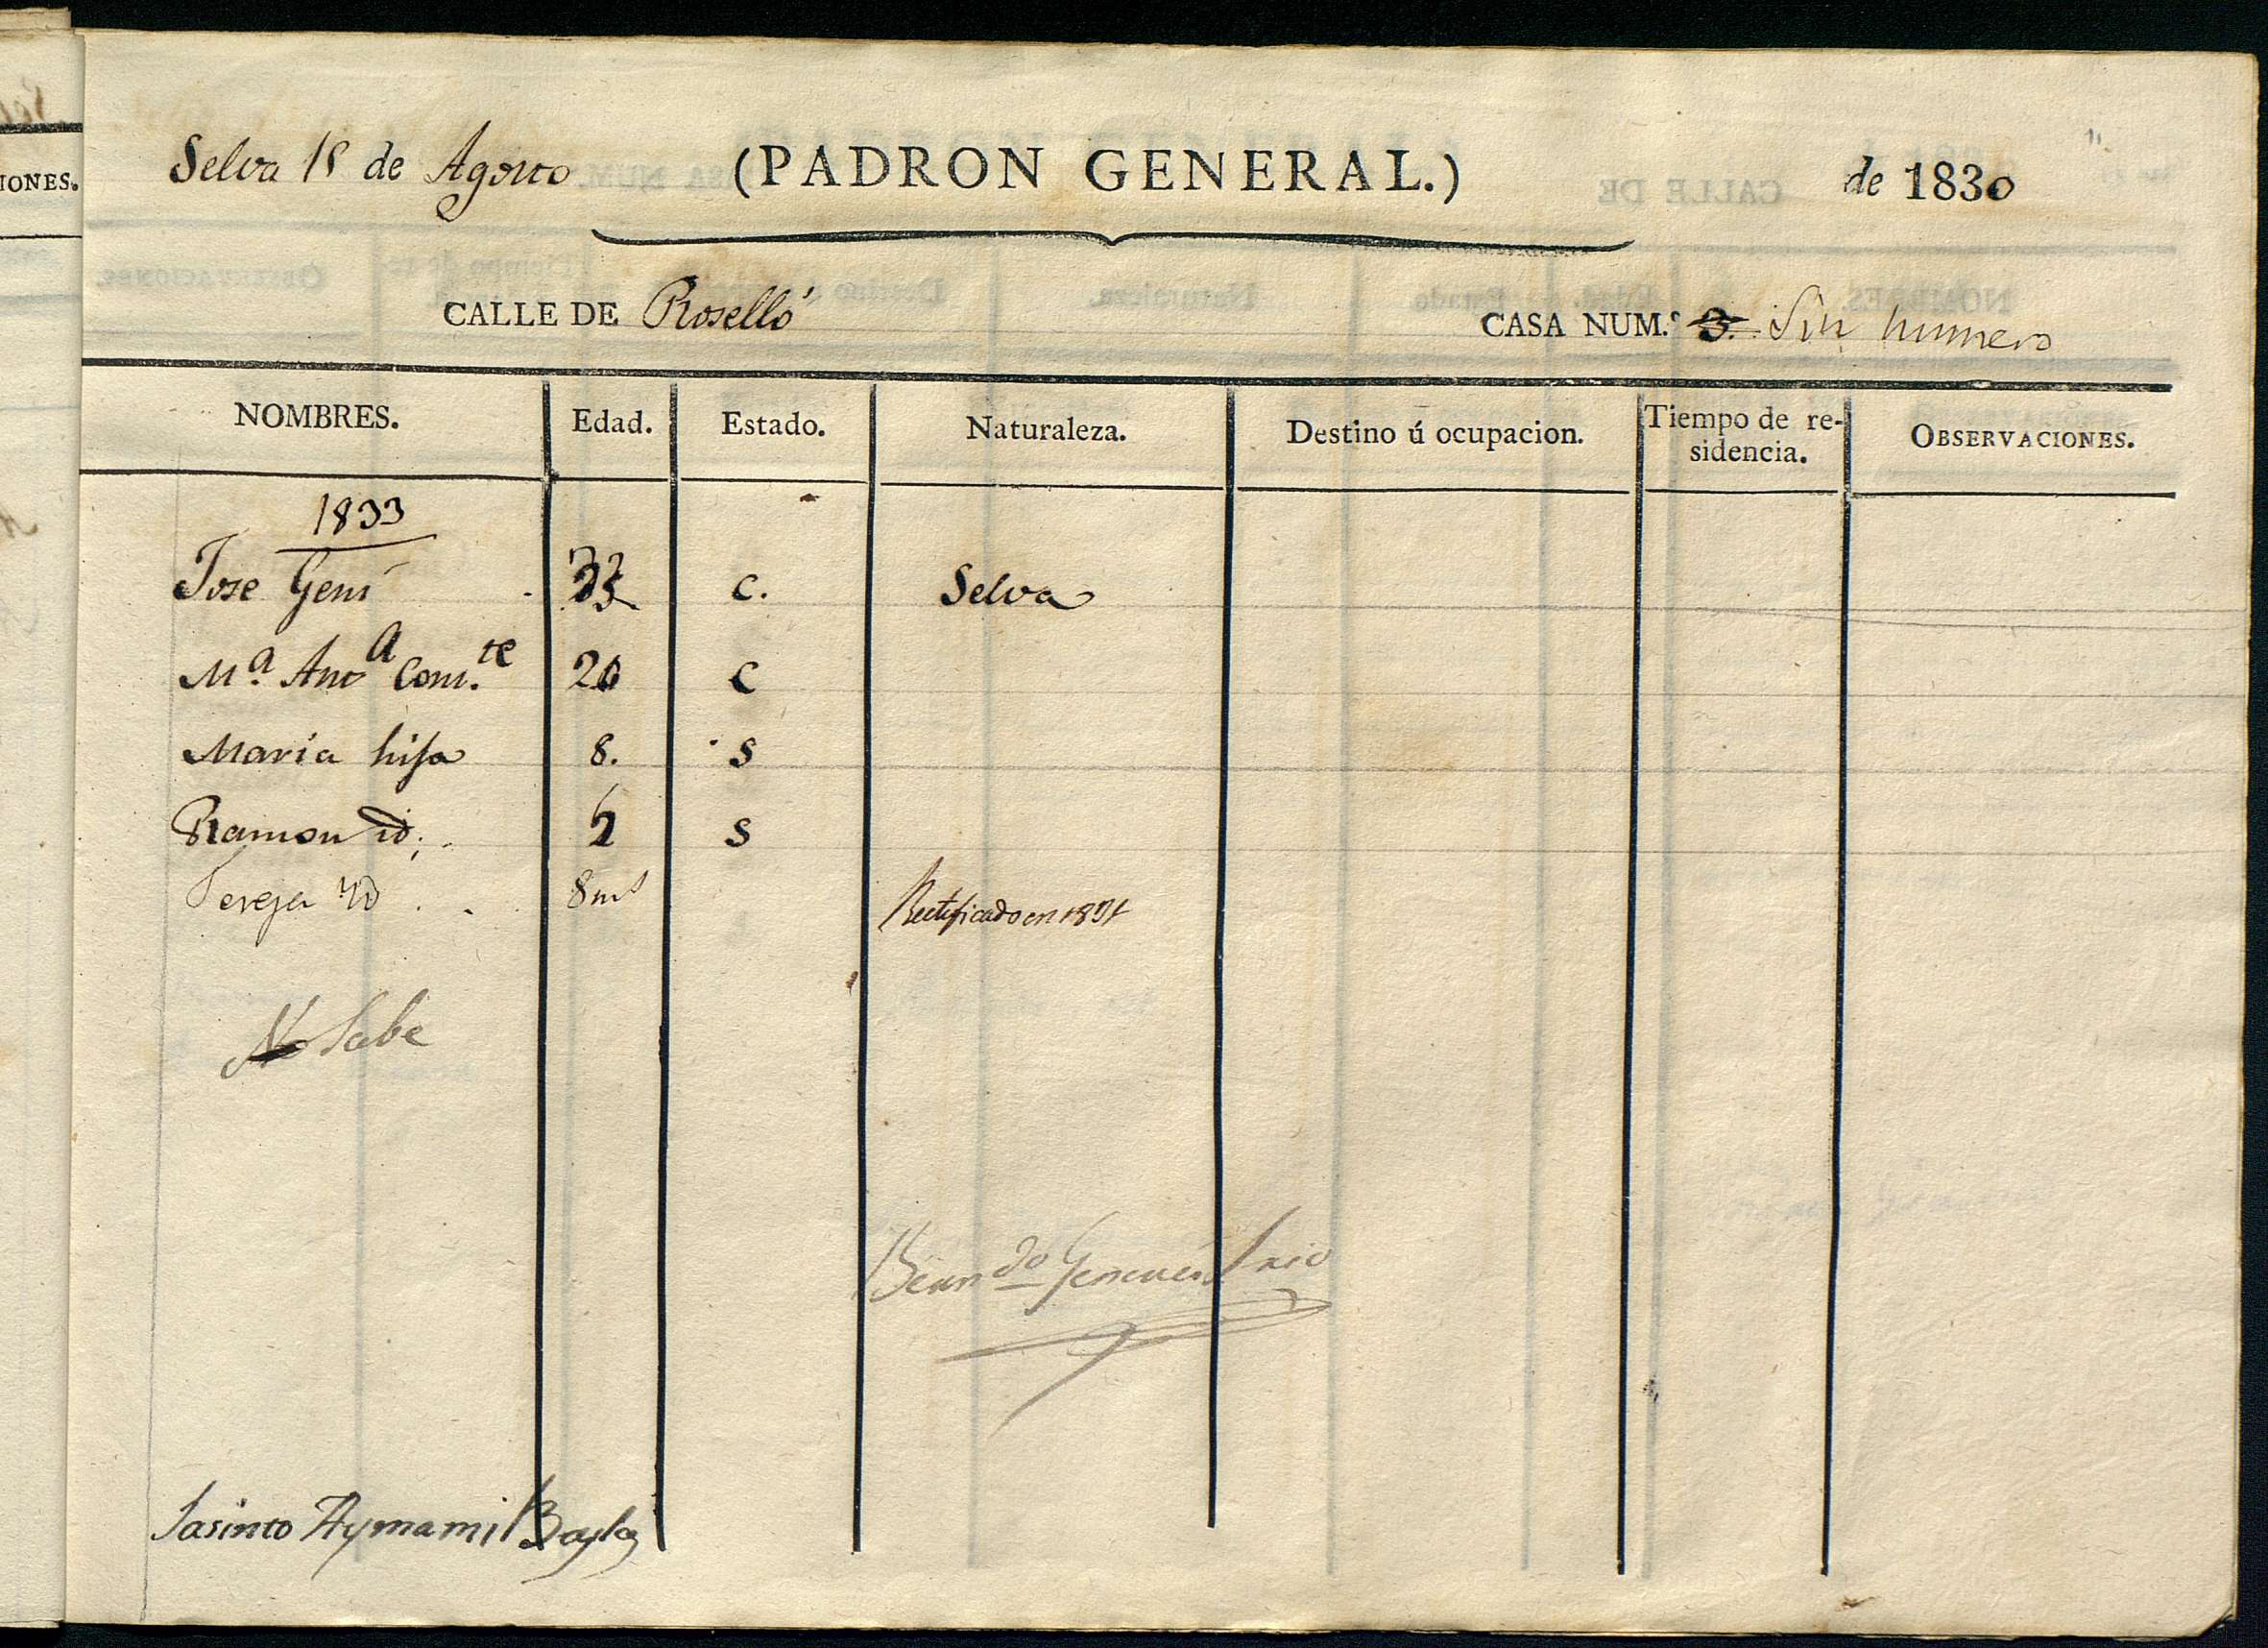 IONES.
Selva 18 de Agosto (PADRON GENERAL.) de 1830
CALLE DE Roselló CASA NUM.º 3. Sin numero
NOMBRES. Edad. Estado. Naturaleza. Destino ú ocupacion. Tiempo de re-
sidencia. OBSERVACIONES.
1833
Jose Gení 33 c. Selva
M.ª Ant.ª Cons.te 20 c
Maria hija 8. s
Ramon id. 2 s
Teresa id 8 m.s Rectificado en 1831
No Sabe
Jasinto Aymamil Bayle